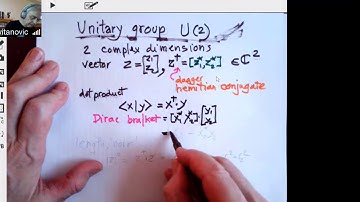 vitanovic
Unitary group U(2)
2 complex dimensions
vector z = [z₁ z₂], z† = [z₁*, z₂*] ∈ ℂ²
dagger
hemitian conjugate
dot product
⟨x|y⟩ = x†·y
Dirac bracket = [x₁*, x₂*]·[y₁ y₂]